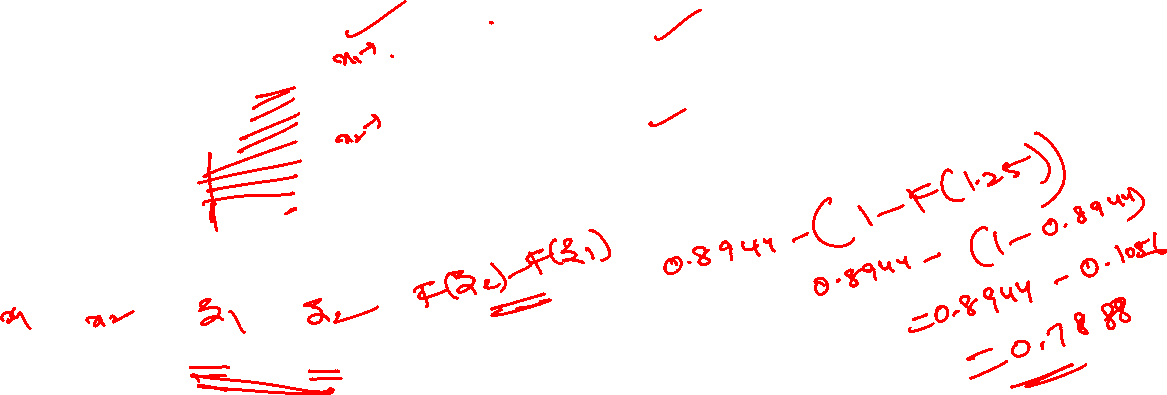 x₁→
x₂→
x₁ x₂ z₁ z₂ F(z₂)-F(z₁)
0.8944-(1-F(1.25))
0.8944-(1-0.8944)
=0.8944-0.1056
=0.7888